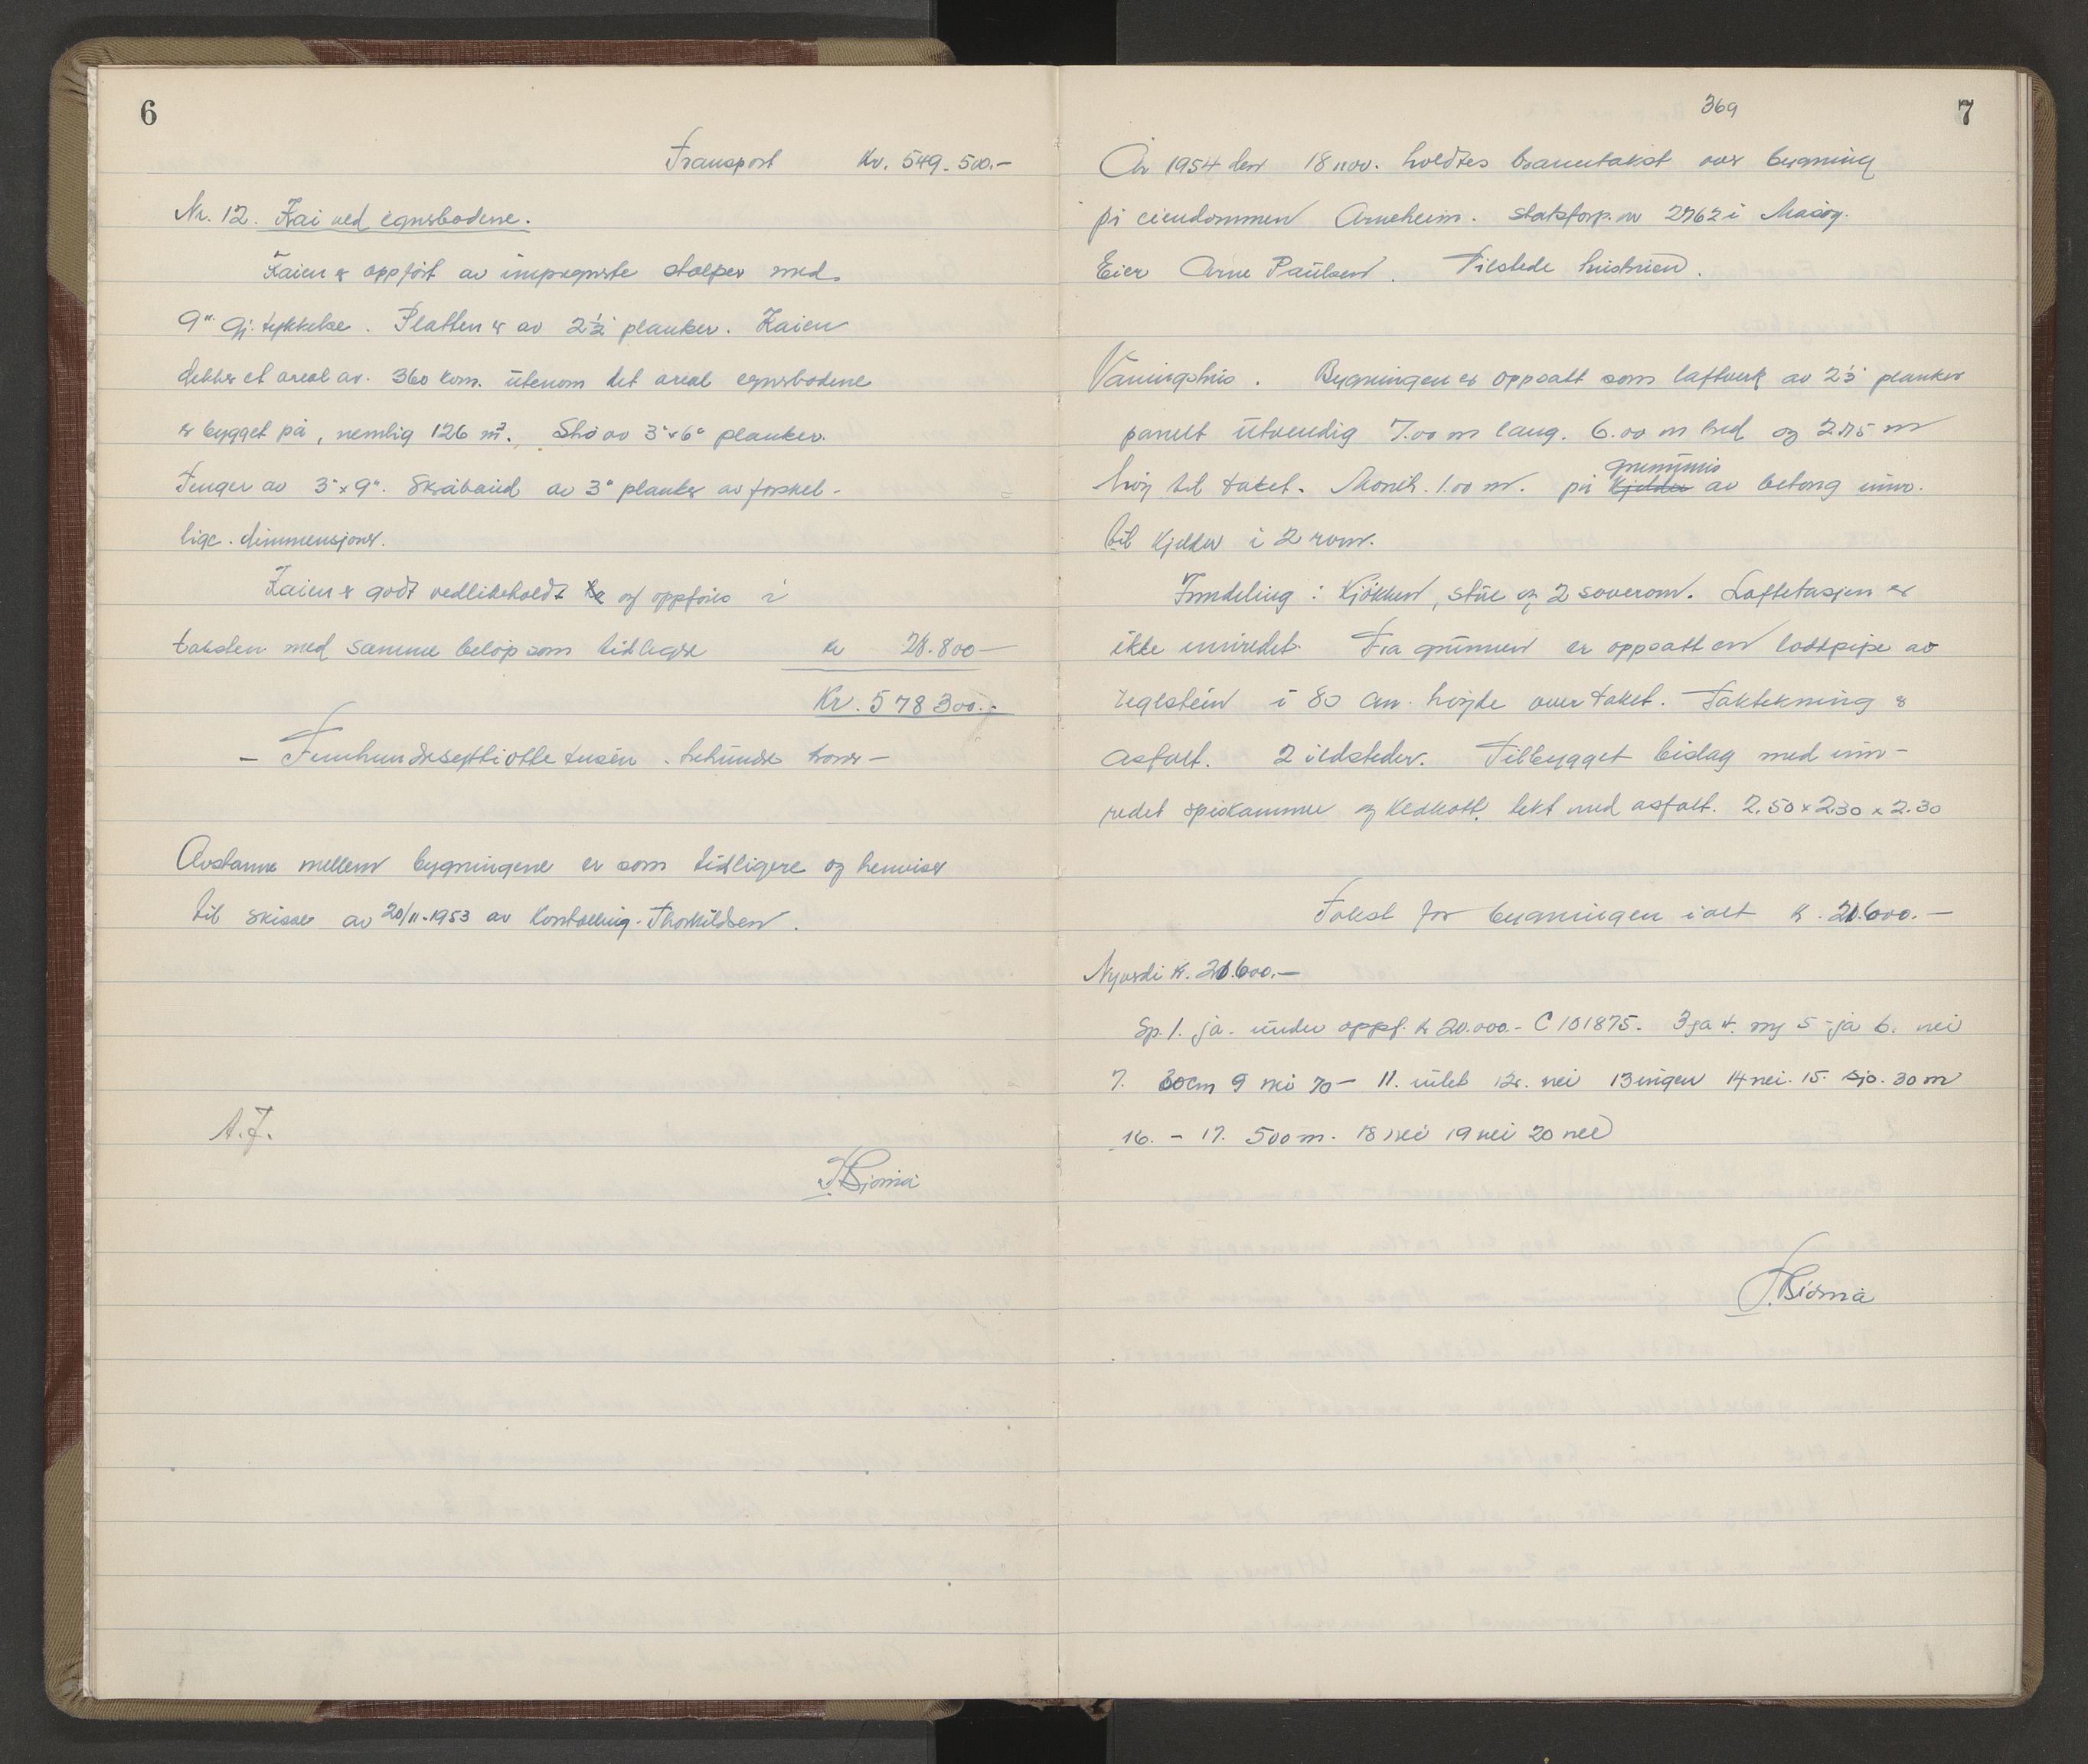 6
Transport Kr. 549.500.-
Nr. 12. Kai ved egnsbodene.
Kaien er oppført av impregnerte stolper med
9" Gj. tykkelse. Platten er av 2½" planker. Kaien
dekker et areal av. 360 kvm. utenom det areal egnsbodene
er bygget på, nemlig 126 m². Strø av 3"x6" planker.
Tenger av 3"x9". Skråbånd av 3" planker av forskel-
lige. dimmensjoner.
Kaien er godt vedlikeholdt og oppføres i
taksten med samme beløp som tidligere kr 28.800-
Kr. 578300.-
- Femhundreseyttiotte tusen. trehundre kroner-
Avstanne mellem bygningene er som tidligere og henviser
til skisse av 20/11-1953 av Kontrolling. Thorkildsen.
A.J.
369
7
År 1954 den 18 nov. holdtes branntakst over bygning
på eiendommen Arneheim. Statsforp. nr 2762 i Måsøy.
Eier Arne Paulsen. Tilstede hustruen.
Våningshus. Bygningen er oppsatt som laftverk av 2½" planker
panelt utvendig 7.00 m lang. 6.00 m bred og 2.75 m
høy til taket. Møneh. 1.00 m. på kjelder grunnmur av betong innr.
til kjelder i 2 rom.
Inndeling: Kjøkken, stue og 2 soverom. Loftetasjen er
ikke innredet. Fra grunnen er oppsatt en lodtpipe av
teglstein i 80 cm. høyde over taket. Taktekning er
asfalt. 2 ildsteder. Tilbygget bislag med inn-
redet spiskammer og kledkott, tekt med asfalt. 2.50 x 2.30 x 2.30
Takst for bygningen i alt kr. 21.600.-
Nyverdi kr. 21.600.-
Sp. 1. ja. under oppf. kr 20.000.- C 101875. 3 ja 4. ny 5 - ja 6. nei
7. 30cm 9 nei 10- 11. intet 12. nei 13 ingen 14 nei. 15. sjø. 30 m
16. - 17. 500 m. 18 nei 19 nei 20 nei